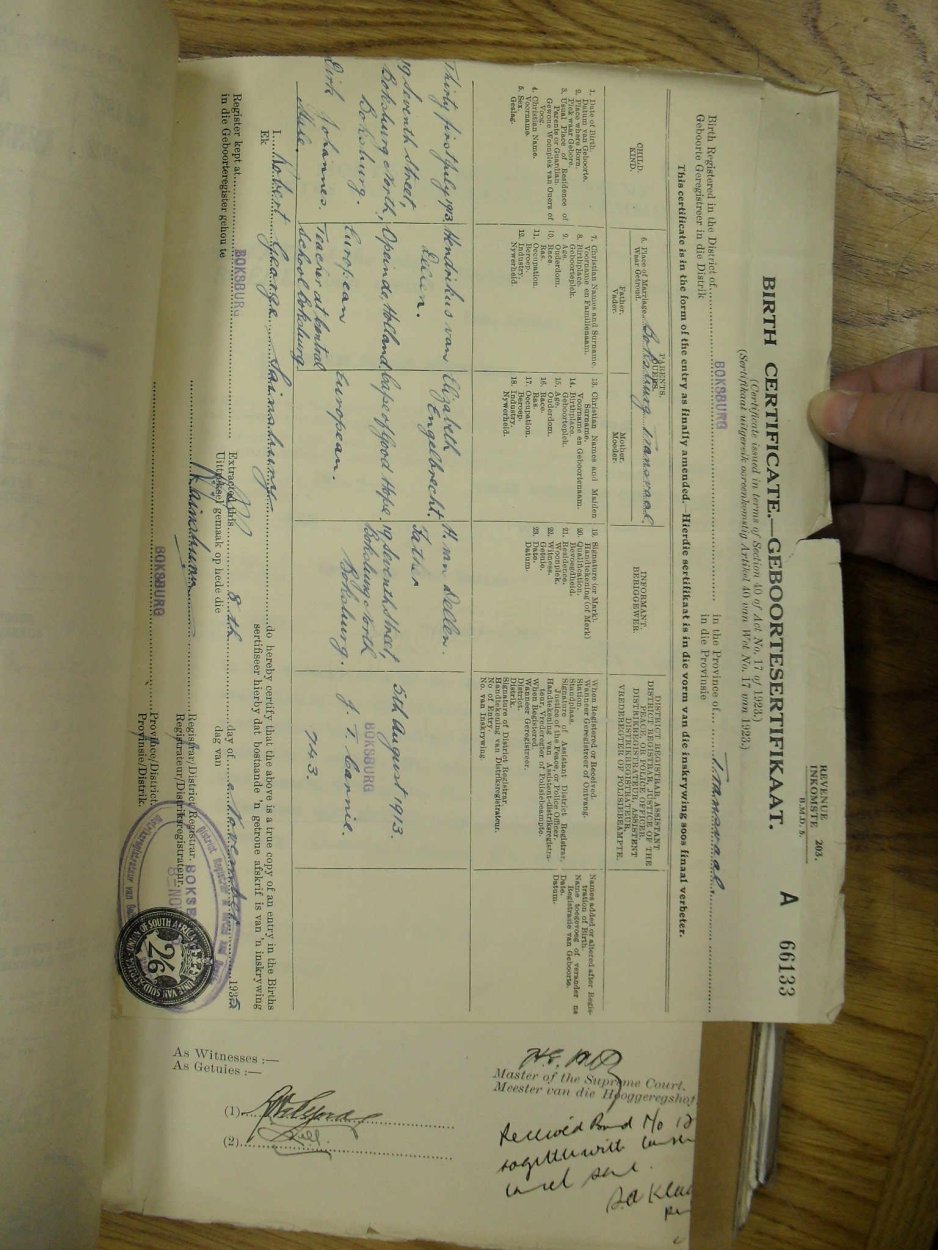 REVENUE 203.
INKOMSTE
B.M.D. 5.
A 66133
BIRTH CERTIFICATE.—GEBOORTESERTIFIKAAT.
(Certificate issued in terms of Section 40 of Act No. 17 of 1923.)
(Sertifikaat uitgereik ooreenkomstig Artikel 40 van Wet No. 17 van 1923.)
Birth Registered in the District of BOKSBURG in the Province of Transvaal
Geboorte Geregistreer in die Distrik in die Provinsie
This certificate is in the form of the entry as finally amended.—Hierdie sertifikaat is in die vorm van die inskrywing soos finaal verbeter.
CHILD.
KIND.
PARENTS.
OUERS.
6. Place of Marriage Boksburg Transvaal
Waar Getroud.
Father.
Vader.
Mother.
Moeder.
INFORMANT.
BERIGGEWER.
DISTRICT REGISTRAR, ASSISTANT
DISTRICT REGISTRAR, JUSTICE OF THE
PEACE, OR POLICE OFFICER.
DISTRIKREGISTRATEUR, ASSISTENT
DISTRIKREGISTRATEUR,
VREDEREGTER OF POLISIEBEAMPTE.
1. Date of Birth.
Datum van Geboorte.
2. Place where Born.
Plek waar Gebore.
3. Usual Place of Residence of
Parents or Guardian
Gewone Woonplek van Ouers of
Voog.
4. Christian Name.
Voorname.
5. Sex.
Geslag.
7. Christian Names and Surname.
Voorname en Familienaam.
8. Birthplace.
Geboorteplek.
9. Age.
Ouderdom.
10. Race
Ras.
11. Occupation.
Beroep.
12. Industry.
Nywerheid.
13. Christian Names and Maiden
Surname.
Voorname en Geboortenaam.
14. Birthplace
Geboorteplek.
15. Age.
Ouderdom.
16. Race.
Ras.
17. Occupation.
Beroep.
18. Industry.
Nywerheid.
19. Signature (or Mark).
Handtekening (of Merk)
20. Qualification.
Bevoegdheid.
21. Residence.
Woonplek.
22. Witness.
Getuie.
23. Date.
Datum.
When Registered or Received.
Wanneer Geregistreer of Ontvang.
Station.
Standplaas.
Signature of Assistant District Registrar,
Justice of the Peace, or Police Officer.
Handtekening van Assistent-distriksregistra-
teur, Vrederegter of Polisiebeampte.
When Registered.
Wanneer Geregistreer.
District.
Distrik.
Signature of District Registrar.
Handtekening van Distriksregistrateur.
No. of Entry.
No. van Inskrywing.
Names added or altered after Regis-
tration of Birth.
Name toegevoeg of verander na
Registrasie van Geboorte.
Date.
Datum.
Thirty first July 1913
19 Seventh Street,
Boksburg North,
Boksburg.
Dirk Johannes.
Male
Hendrikus van
Deelen.
Opeinde, Holland
European
Teacher at Central
School Boksburg
Elizabeth
Engelbrecht
Cape of Good Hope.
European.
H. van Deelen.
Father
19 Seventh Street,
Boksburg North
Boksburg.
5th August 1913
BOKSBURG
J. F. Carnie.
743.
I, Robert George Sainsbury do hereby certify that the above is a true copy of an entry in the Births
Ek sertifiseer hierby dat bostaande 'n getroue afskrif is van 'n inskrywing
Register kept at BOKSBURG Extracted this 8th day of November 1935
in die Geboorteregister gehou te Uittreksel gemaak op hede die dag van
Sainsbury Registrar/District Registrar.
Registrateur/Distriksregistrateur.
BOKSBURG Province/District.
Provinsie/Distrik.
BOKSB
8-NO
UNION OF SOUTH AFRICA
UNIE VAN SUID-AFRIKA
26
Master of the Supreme Court.
Meester van die Hooggeregshof
As Witnesses :—
As Getuies :—
(1)
(2)
Received Bond No